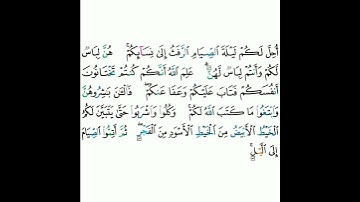 أُحِلَّ لَكُمْ لَيْلَةَ الصِّيَامِ الرَّفَثُ إِلَىٰ نِسَائِكُمْ ۚ هُنَّ لِبَاسٌ
لَكُمْ وَأَنْتُمْ لِبَاسٌ لَهُنَّ ۗ عَلِمَ اللَّهُ أَنَّكُمْ كُنْتُمْ تَخْتَانُونَ
أَنْفُسَكُمْ فَتَابَ عَلَيْكُمْ وَعَفَا عَنْكُمْ ۖ فَالْآنَ بَاشِرُوهُنَّ
وَابْتَغُوا مَا كَتَبَ اللَّهُ لَكُمْ ۚ وَكُلُوا وَاشْرَبُوا حَتَّىٰ يَتَبَيَّنَ لَكُمُ
الْخَيْطُ الْأَبْيَضُ مِنَ الْخَيْطِ الْأَسْوَدِ مِنَ الْفَجْرِ ۖ ثُمَّ أَتِمُّوا الصِّيَامَ
إِلَى اللَّيْلِ ۚ